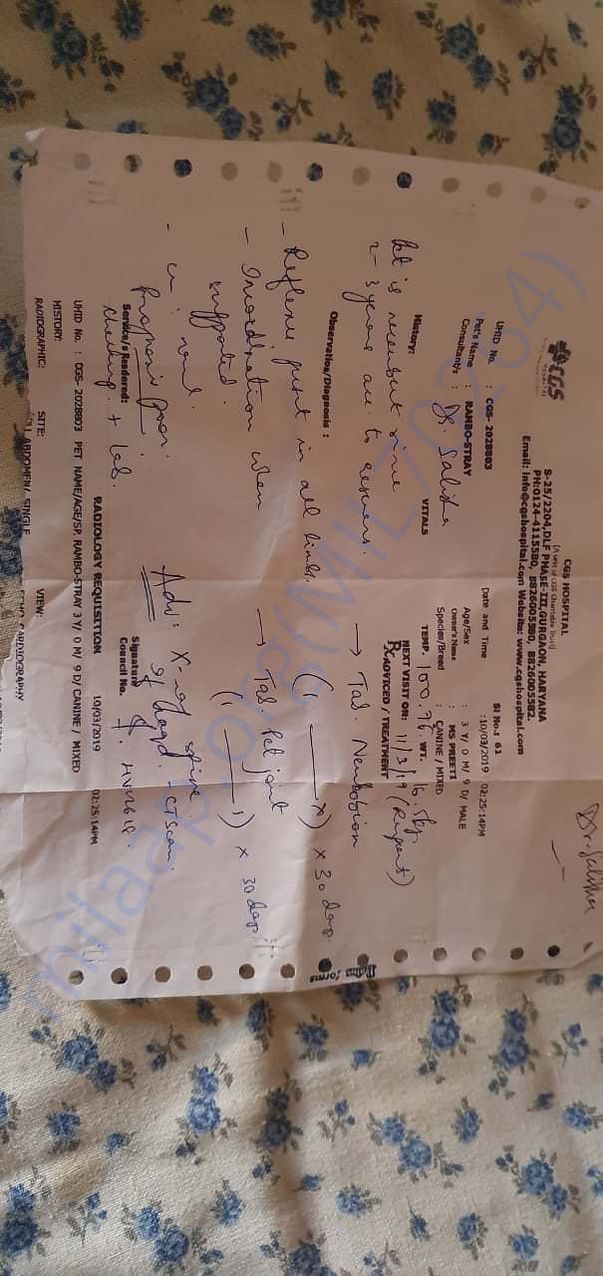 Dr. Salisha
CGS
CGS HOSPITAL
(A unit of CGS Charitable Trust)
S-25/2204,DLF PHASE-III,GURGAON, HARYANA
PH:0124-4115580, 8826005580, 8826005582.
Email: info@cgshospital.com Website: www.cgshospital.com
Sl No.: 61
UHID No. : CGS- 2028803 Date and Time :10/03/2019 02:25:14PM
Pet's Name : RAMBO-STRAY Age/Sex : 3 Y/ 0 M/ 9 D/ MALE
Consultant/s : Dr. Salisha Owner's Name : MS PREETI
Species/Breed : CANINE / MIXED
VITALS TEMP. 100.7F WT. 16.5kg
History: NEXT VISIT ON: 11/3/19 (Repeat)
Rx ADVICED / TREATMENT
Pet is recumbent since
2-3 years acc to rescuers.
→ Tab. Neurobion
(1 x) x 30 days
Observation/Diagnosis :
- Reflexes present in all limbs.
- Incoordination when
supported.
→ Tab. Pet joint
(1 1) x 30 days
Prognosis poor.
Adv: X-ray spine
CT Scan.
Service/s Rendered:
Checkup + Lab.
Signature
Council No.
RADIOLOGY REQUISITION 10/03/2019 02:25:14PM
UHID No. : CGS- 2028803 PET NAME/AGE/SP. RAMBO-STRAY 3 Y/ 0 M/ 9 D/ CANINE / MIXED
HISTORY:
RADIOGRAPHIC: SITE: VIEW:
ABDOMEN/ SINGLE ECHO CARDIOGRAPHY
milaap.org(MIL70264)